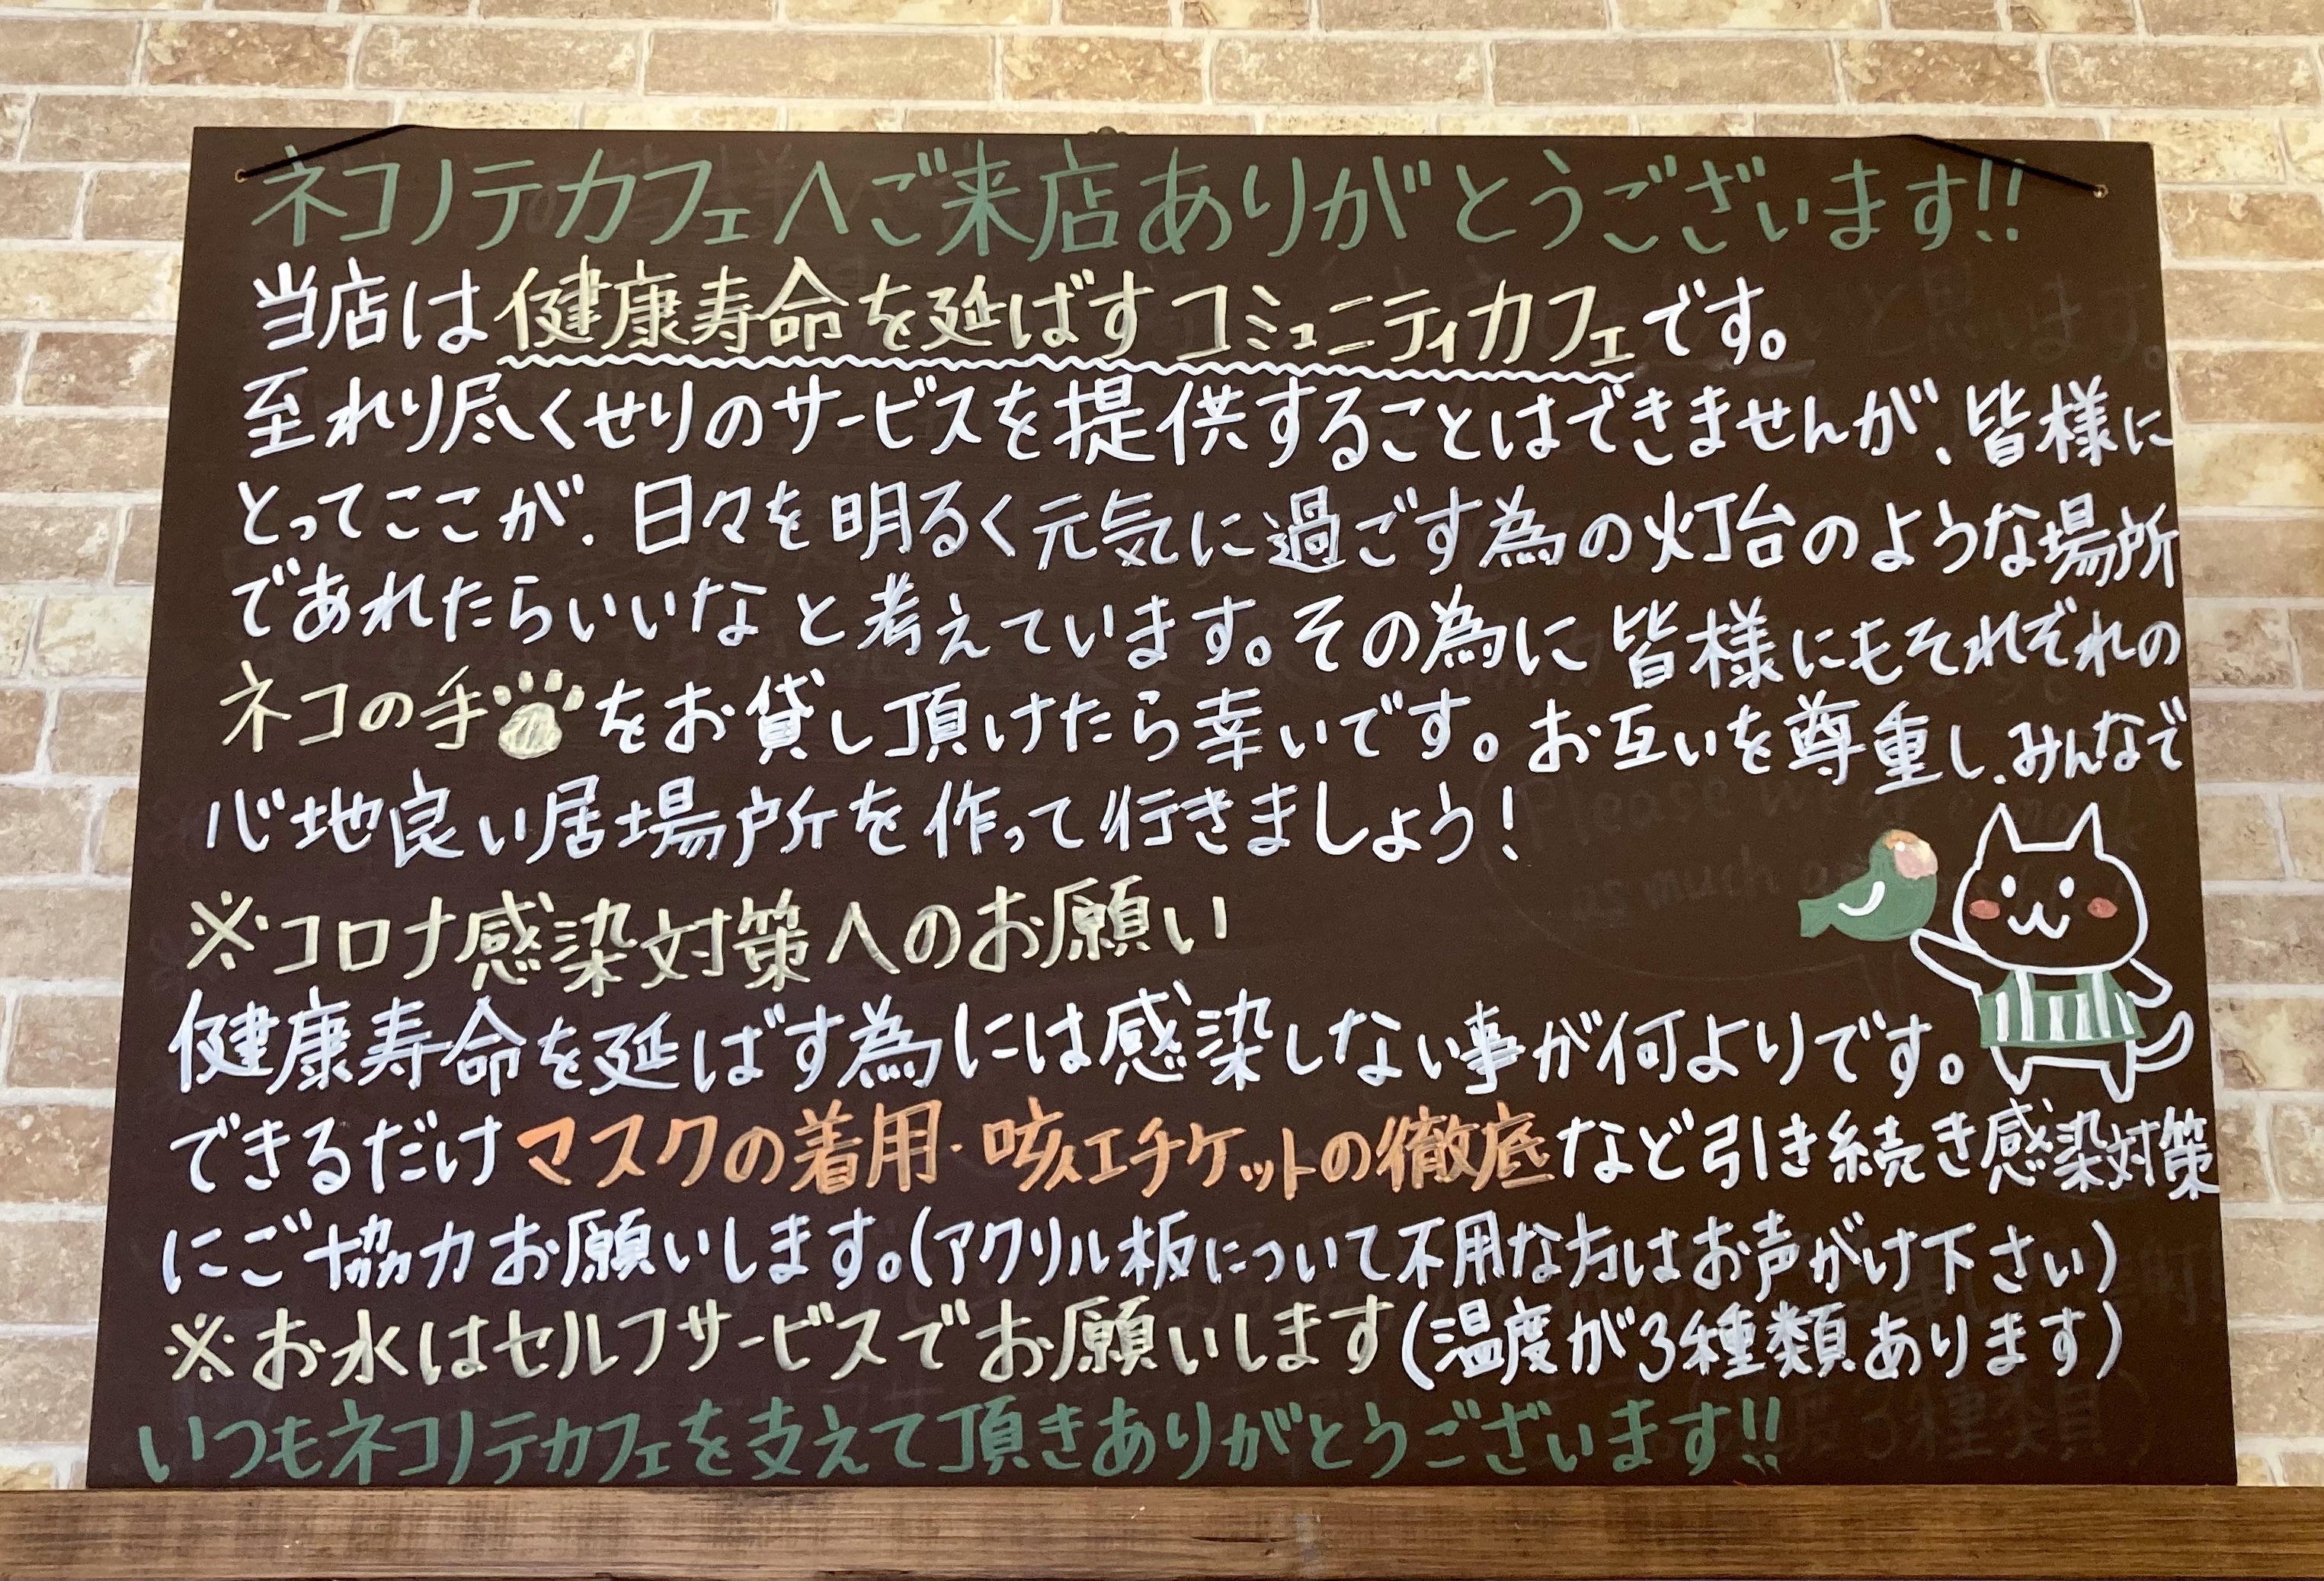 ネコノテカフェへご来店ありがとうございます!!
当店は健康寿命を延ばすコミュニティカフェです。
至れり尽くせりのサービスを提供することはできませんが、皆様に
とってここが、日々を明るく元気に過ごす為の灯台のような場所
であれたらいいなと考えています。その為に皆様にもそれぞれの
ネコの手をお貸し頂けたら幸いです。お互いを尊重し、みんなで
心地良い居場所を作って行きましょう!
※コロナ感染対策へのお願い
健康寿命を延ばす為には感染しない事が何よりです。
できるだけマスクの着用・咳エチケットの徹底など引き続き感染対策
にご協力お願いします。(アクリル板について不用な方はお声がけ下さい)
※お水はセルフサービスでお願いします(温度が3種類あります)
いつもネコノテカフェを支えて頂きありがとうございます!!